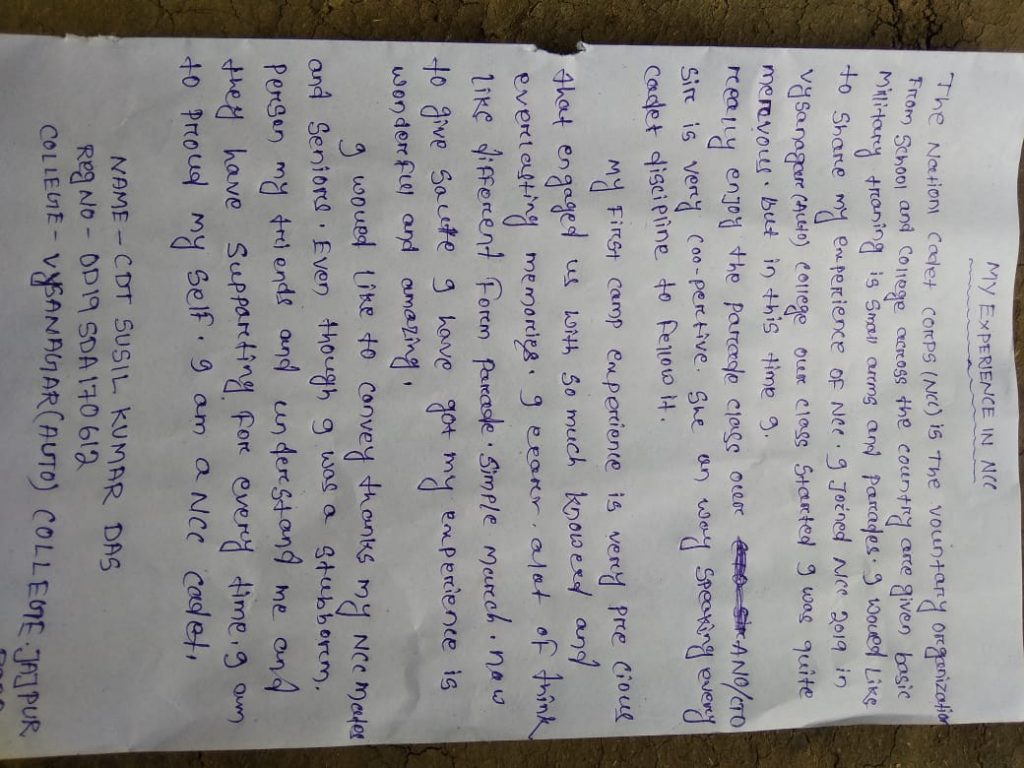 MY EXPERIENCE IN NCC
The Nationl cadet corps (NCC) is The vountary organization
From School and College across the country are given basic
military traning is Small arms and parades. I woued Like
to Share my experience of Ncc. I Joined Ncc 2019 in
vysanagar(Auto) college our class Started I was quite
mervous. but in this time I.
really enjoy the parade class our ANO/CTO
Sir is very coo-perctive. She an way Speaking every
cadet discipine to Fellow it.
My First camp experience is very pre cious
that engaged us with so much knowed and
everlasting memories. I learn. alot of think
Like different Form parade. Simple march. now
to give Salute I have got my experience is
wonderful and amazing.
I woued Like to convey thanks my Ncc mates
and Seniors. Even though I was a stubborn.
person my friends and understand me and
they have Supparting For every time. I am
to proud my Self. I am a Ncc cadet.
NAME - CDT SUSIL KUMAR DAS
Reg NO - OD19SDA170612
COLLEGE - VYSANAGAR(AUTO) COLLEGE JAJPUR